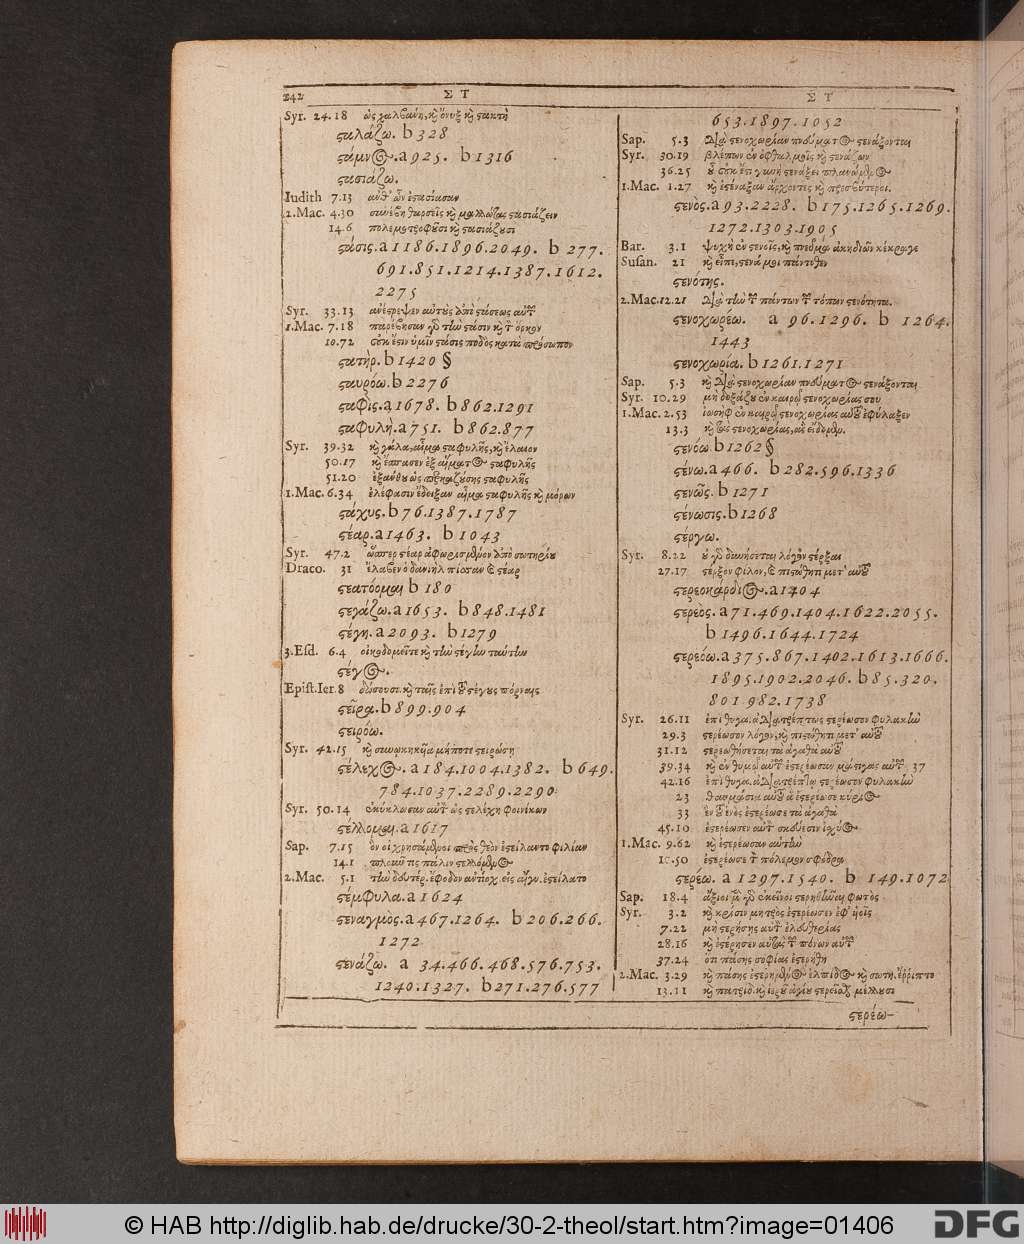 242 Σ Τ
Syr. 24.18 ὡς χαλβάνη, καὶ ὄνυξ καὶ στακτὴ
σταλάζω. b 328
στάμνος. a 925. b 1316
στασιάζω.
Iudith 7.13 ἀνθ' ὧν ἐστασίασαν
2.Mac. 4.30 συνέβη θαρσεῖς καὶ μαλλώτας στασιάζειν
14.6 πολεμοτροφοῦσι καὶ στασιάζουσι
στάσις. a 1186.1896.2049. b 277.
691.851.1214.1387.1612.
2275
Syr. 33.13 ἀνέστρεψεν αὐτοὺς ἀπὸ στάσεως αὐτῶν
1.Mac. 7.18 παρέβησαν γὰρ τὴν στάσιν καὶ τὸν ὅρκον
10.72 οὐκ ἔστιν ὑμῖν στάσις ποδὸς κατὰ πρόσωπον
στατήρ. b 1420 §
σταυρόω. b 2276
σταφὶς. a 1678. b 862.1291
σταφυλὴ. a 751. b 862.877
Syr. 39.32 καὶ γάλα, αἷμα σταφυλῆς, καὶ ἔλαιον
50.17 καὶ ἔσπεισεν ἐξ αἵματος σταφυλῆς
51.20 ἐξανθοῦ ὡς περκαζούσης σταφυλῆς
1.Mac. 6.34 ἐλέφασιν ἔδειξαν αἷμα σταφυλῆς καὶ μόρων
στάχυς. b 76.1387.1787
στέαρ. a 1463. b 1043
Syr. 47.2 ὥσπερ στέαρ ἀφωρισμένον ἀπὸ σωτηρίου
Draco. 31 ἔλαβεν ὁ δανιὴλ πίσσαν καὶ στέαρ
στεατόομαι b 180
στεγάζω. a 1653. b 848.1481
στέγη. a 2093. b 1279
3.Esd. 6.4 οἰκοδομεῖτε καὶ τὴν στέγην ταύτην
στέγος.
Epist.Ier. 8 δώσουσι. καὶ ταῖς ἐπὶ τοῦ στέγους πόρναις
στεῖρα. b 899.904
στειρόω.
Syr. 42.15 καὶ συνῳκηκυῖα μήποτε στειρώσῃ
στέλεχος. a 184.1004.1382. b 649.
784.1037.2289.2290.
Syr. 50.14 ἐκύκλωσαν αὐτὸν ὡς στελέχη φοινίκων
στέλλομαι. a 1617
Sap. 7.15 ὃν οἱ χρησάμενοι πρὸς θεὸν ἐστείλαντο φιλίαν
14.1 πλοῦν τις πάλιν στελλόμενος
2.Mac. 5.1 τὴν δευτέρ. ἔφοδον ἀντίοχ. εἰς αἴγυ. ἐστείλατο
στέμφυλα. a 1624
στεναγμὸς. a 467.1264. b 206.266.
1272
στενάζω. a 34.466.468.576.753.
1240.1327. b 271.276.577
Σ Τ
653.1897.1052
Sap. 5.3 διὰ στενοχωρίαν πνεύματος στενάξονται
Syr. 30.19 βλέπων ἐν ὀφθαλμοῖς καὶ στενάζων
36.25 οὗ οὐκ ἔστι γυνὴ στενάξει πλανώμενος
1.Mac. 1.27 καὶ ἐστέναξαν ἄρχοντες καὶ πρεσβύτεροι.
στενὸς. a 93.2228. b 175.1265.1269.
1272.1303.1905
Bar. 3.1 ψυχὴ ἐν στενοῖς, καὶ πνεῦμα ἀκηδιῶν κέκραγε
Susan. 21 καὶ εἶπε, στενά μοι πάντοθεν
στενότης.
2.Mac. 12.21 διὰ τὴν τῶν πάντων τῶν τόπων στενότητα.
στενοχωρέω. a 96.1296. b 1264.
1443
στενοχωρία. b 1261.1271
Sap. 5.3 καὶ διὰ στενοχωρίαν πνεύματος στενάξονται
Syr. 10.29 μὴ δοξάζου ἐν καιρῷ στενοχωρίας σου
1.Mac. 2.53 ἰωσὴφ ἐν καιρῷ στενοχωρίας αὐτοῦ ἐφύλαξεν
13.3 καὶ τὰς στενοχωρίας, ἃς εἴδομεν.
στενόω b 1262 §
στένω. a 466. b 282.596.1336
στενῶς. b 1271
στένωσις. b 1268
στέργω.
Syr. 8.22 οὐ γὰρ δυνήσεται λόγον στέρξαι
27.17 στέρξον φίλον, καὶ πιστώθητι μετ' αὐτοῦ
στερεοκάρδιος. a 1404
στερεὸς. a 71.469.1404.1622.2055.
b 1496.1644.1724
στερεόω. a 375.867.1402.1613.1666.
1895.1902.2046. b 85.320.
801 982.1738
Syr. 26.11 ἐπὶ θυγα. ἀδιατρέπτως στερέωσον φυλακὴν
29.3 στερέωσον λόγον, καὶ πιστώθητι μετ' αὐτοῦ
31.12 στερεωθήσεται τὰ ἀγαθὰ αὐτοῦ
39.34 καὶ ἐν θυμῷ αὐτῶν ἐστερέωσαν μάστιγας αὐτῶν 37
42.16 ἐπὶ θυγα. ἀδιατρέπτῳ στερέωσον φυλακὴν
23 θαυμάσια αὐτοῦ ἃ ἐστερέωσε κύριος
33 ἓν τοῦ ἑνὸς ἐστερέωσε τὰ ἀγαθὰ
45.10 ἐστερέωσεν αὐτὸν σκεύεσιν ἰσχύος
1.Mac. 9.62 καὶ ἐστερέωσαν αὐτὴν
10.50 ἐστερέωσε τὸν πόλεμον σφόδρα
στερέω. a 1297.1540. b 149.1072
Sap. 18.4 ἄξιοι μὲν γὰρ ἐκεῖνοι στερηθῆναι φωτὸς
Syr. 3.2 καὶ κρίσιν μητρὸς ἐστερέωσεν ἐφ' υἱοῖς
7.22 μὴ στερήσῃς αὐτὸν ἐλευθερίας
28.16 καὶ ἐστέρησεν αὐτὰς τῶν πόνων αὐτῶν
37.24 ὅτι πάσης σοφίας ἐστερήθη
2.Mac. 3.29 καὶ πάσης ἐστερημένος ἐλπίδος καὶ σωτη. ἔρριπτο
13.11 καὶ πατρίδ. καὶ ἱεροῦ ἁγίου στερεῖσθαι μέλλουσι
στερέω-
© HAB http://diglib.hab.de/drucke/30-2-theol/start.htm?image=01406
DFG